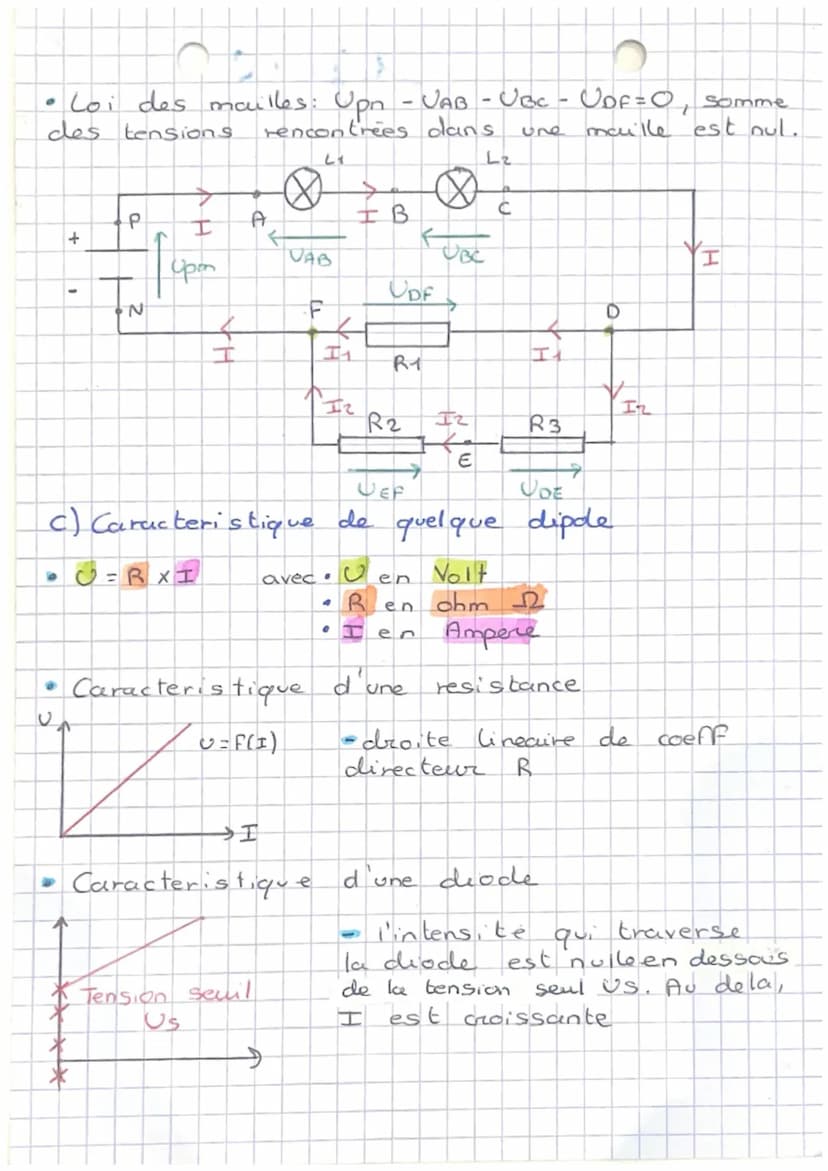 • Loi des mailles: Upn - UAB - UBC - UDF = 0, somme
des tensions rencontrées dans une maille est nul.
L1 L2
P I A I B C
+ UAB UBC I
Upn UDF
- N F D
I I1 R1 I1
I2 R2 I2 R3 I2
E
UEF UDE
c) Caracteristique de quelque dipole
• U = R x I avec • U en Volt
• R en ohm Ω
• I en Ampere
• Caracteristique d'une resistance
U
U = F(I) - droite lineaire de coeff
directeur R
I
• Caracteristique d'une diode
- l'intensité qui traverse
la diode est nulle en dessous
Tension seuil de la tension seul Us. Au dela,
Us I est croissante